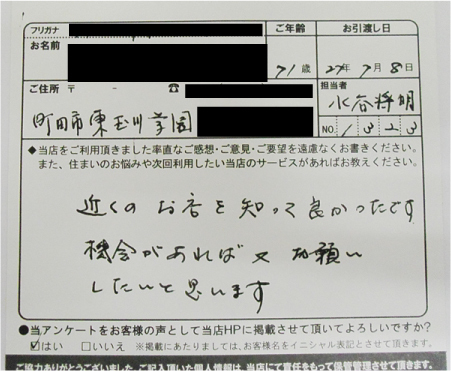 フリガナ
ご年齢
お引渡し日
お名前
71歳
27年7月8日
ご住所 〒 - ☎
担当者
水谷将明
町田市東玉川学園
NO. 1323
◆当店をご利用頂きました率直なご感想・ご意見・ご要望を遠慮なくお書きください。
また、住まいのお悩みや次回利用したい当店のサービスがあればお教えください。
近くのお店を知って良かったです
機会があれば又お願い
したいと思います
●当アンケートをお客様の声として当店HPに掲載させて頂いてよろしいですか?
☑はい □いいえ ※掲載にあたりましては、お客様名をイニシャル表記とさせて頂きます。
ご協力ありがとうございました。ご記入頂いた個人情報は、当店にて責任をもって保管管理させて頂きます。